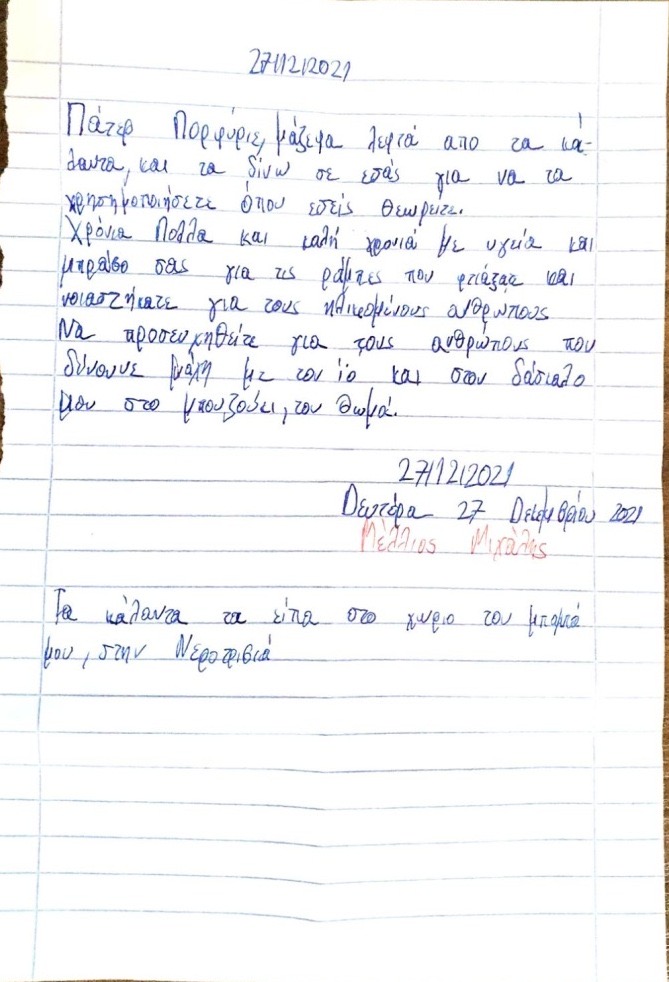 27/12/2021
Πάτερ Πορφύριε, μάζεψα λεφτά απο τα κά-
λαντα, και τα δίνω σε εσάς για να τα
χρησημοποιήσετε όπου εσείς θεωρείτε.
Χρόνια Πολλα και καλή χρονιά με υγεία και
μπράβο σας για τις ράμπες που φτιάξατε και
νοιαστήκατε για τους ηλικιομένους ανθρωπους
Να προσευχηθείτε για τους ανθρώπους που
δύνουνε μάχη με τον ιο και στον δάσκαλο
μου στο μπουζούκι, τον Θωμά.
27/12/2021
Δευτέρα 27 Δεκεμβρίου 2021
Μέλλιος Μιχάλης
Τα κάλαντα τα είπα στο χωριο του μπαμπά
μου, στην Νεροτριβιά